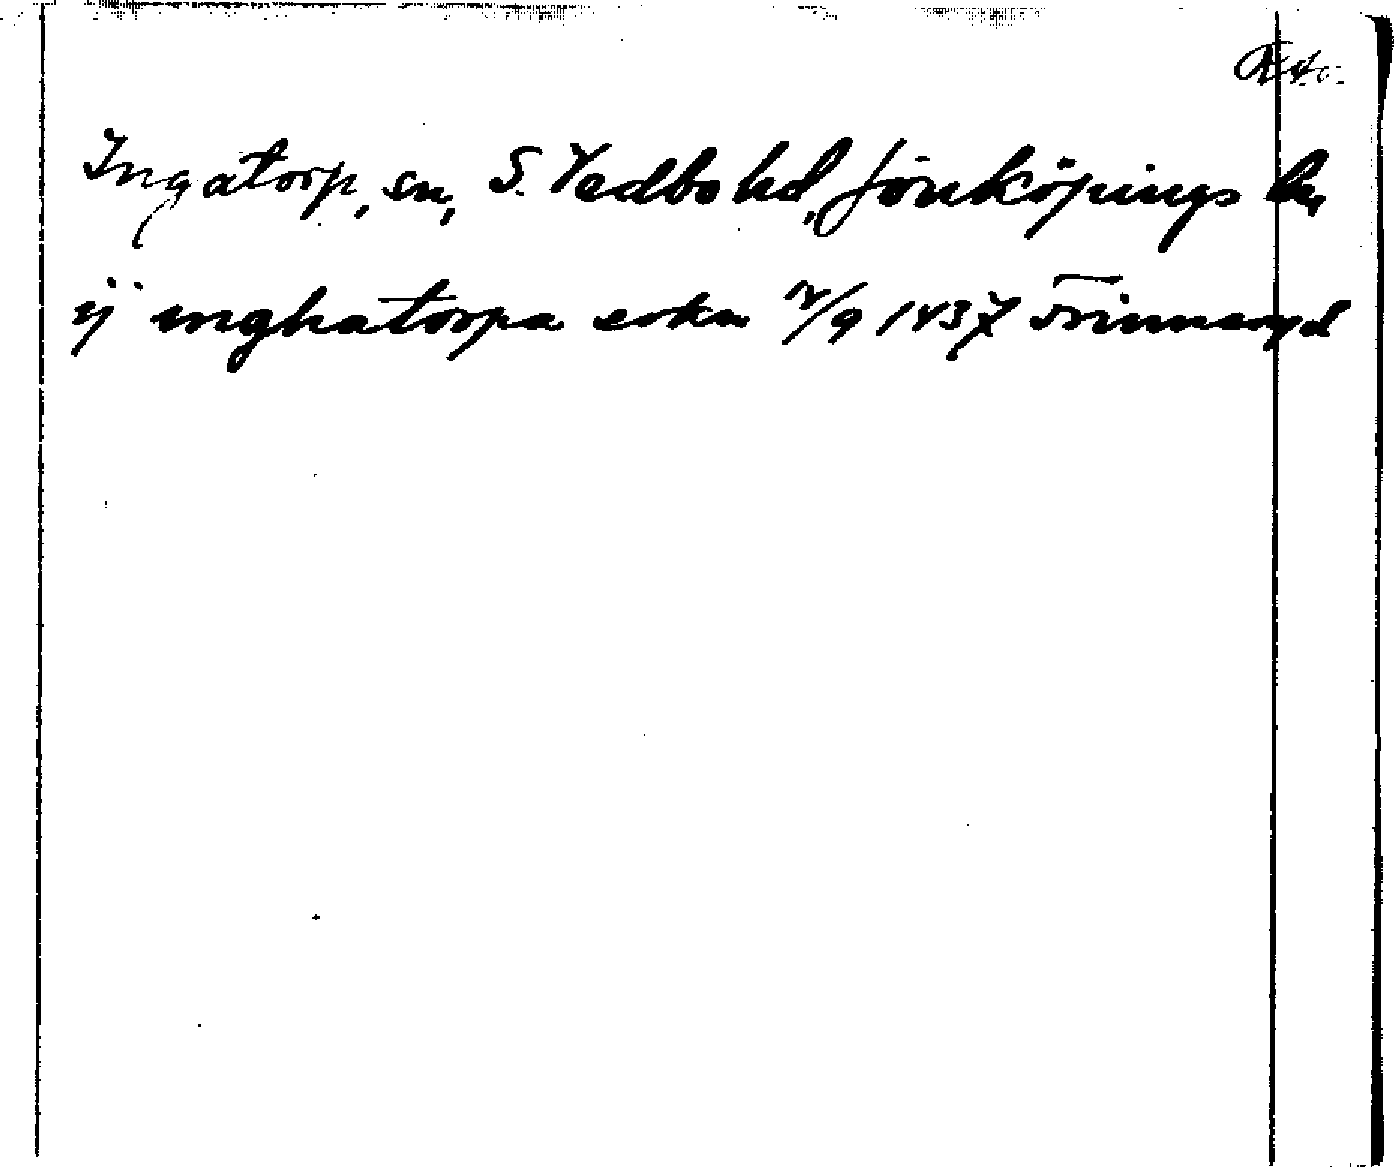 Ingatorp, sn, S. Vedbo hd, Jönköpings l.
ij inghatorpa sokn 12/9 1437 Frinnaryd